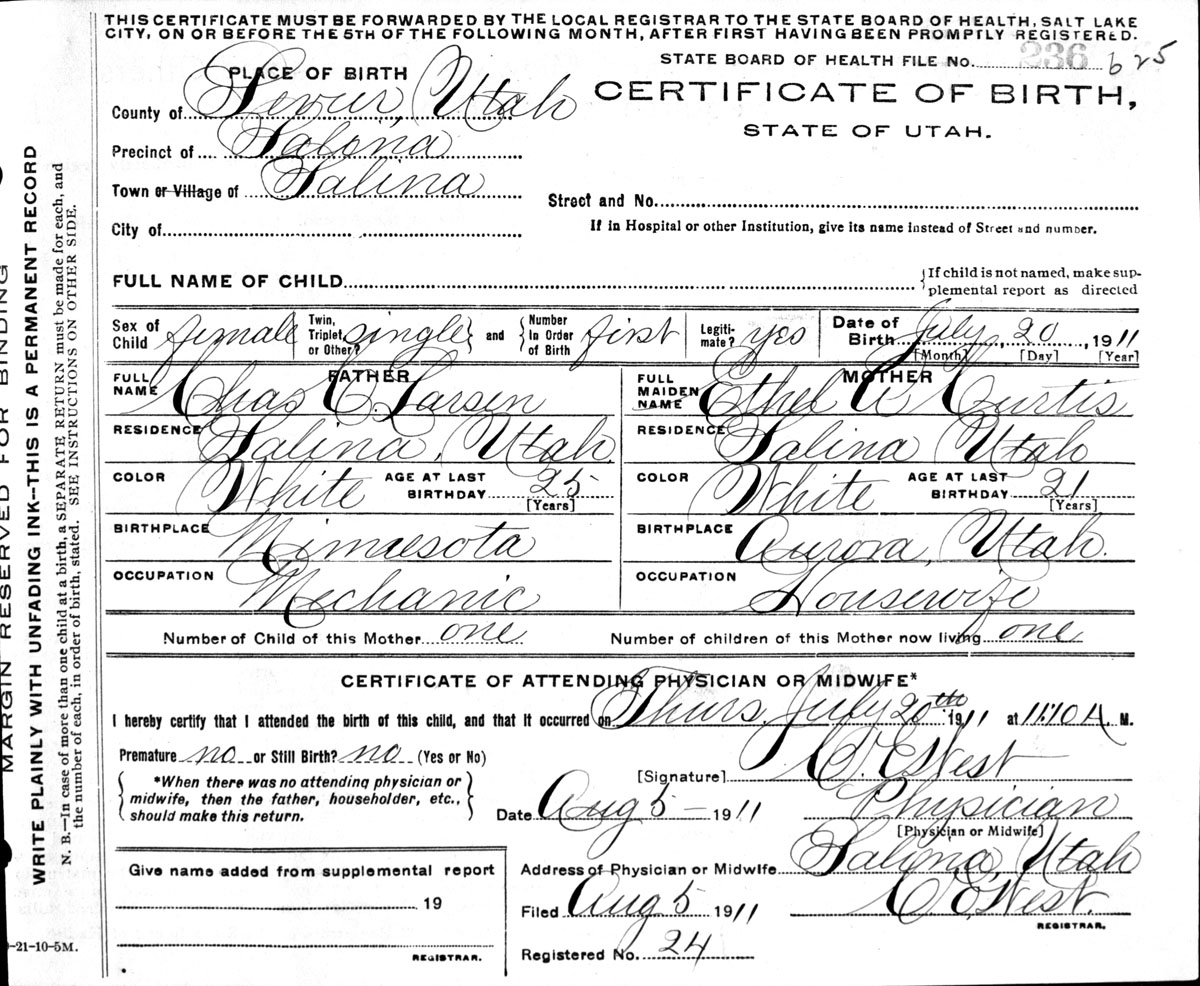 THIS CERTIFICATE MUST BE FORWARDED BY THE LOCAL REGISTRAR TO THE STATE BOARD OF HEALTH, SALT LAKE
CITY, ON OR BEFORE THE 5TH OF THE FOLLOWING MONTH, AFTER FIRST HAVING BEEN PROMPTLY REGISTERED.
STATE BOARD OF HEALTH FILE No. 236 625
PLACE OF BIRTH
CERTIFICATE OF BIRTH,
STATE OF UTAH.
County of Sevier, Utah
Precinct of Salina
Town or Village of Salina
Street and No.
If in Hospital or other Institution, give its name instead of Street and number.
City of
FULL NAME OF CHILD
{If child is not named, make sup-
plemental report as directed
Sex of Child female Twin, Triplet, or Other? single } and { Number in Order of Birth first Legiti-mate? yes Date of Birth July, 20, 1911
[Month] [Day] [Year]
FATHER MOTHER
FULL NAME Chas C. Larsen FULL MAIDEN NAME Ethel A Curtis
RESIDENCE Salina, Utah RESIDENCE Salina Utah
COLOR White AGE AT LAST BIRTHDAY 25 [Years] COLOR White AGE AT LAST BIRTHDAY 21 [Years]
BIRTHPLACE Minnesota BIRTHPLACE Aurora, Utah.
OCCUPATION Mechanic OCCUPATION Housewife
Number of Child of this Mother one Number of children of this Mother now living one
CERTIFICATE OF ATTENDING PHYSICIAN OR MIDWIFE*
I hereby certify that I attended the birth of this child, and that it occurred on Thurs. July 20th 1911 at 11:10 A M.
Premature no or Still Birth? no (Yes or No)
[Signature] C. E West
{ *When there was no attending physician or
midwife, then the father, householder, etc.,
should make this return. }
Date Aug 5 - 1911 Physician
[Physician or Midwife]
Address of Physician or Midwife Salina, Utah
Filed Aug 5 1911 C. E. West.
REGISTRAR.
Registered No. 24
Give name added from supplemental report
19
REGISTRAR.
MARGIN RESERVED FOR BINDING
WRITE PLAINLY WITH UNFADING INK--THIS IS A PERMANENT RECORD
N. B.—In case of more than one child at a birth, a SEPARATE RETURN must be made for each, and
the number of each, in order of birth, stated. SEE INSTRUCTIONS ON OTHER SIDE.
-21-10-5M.